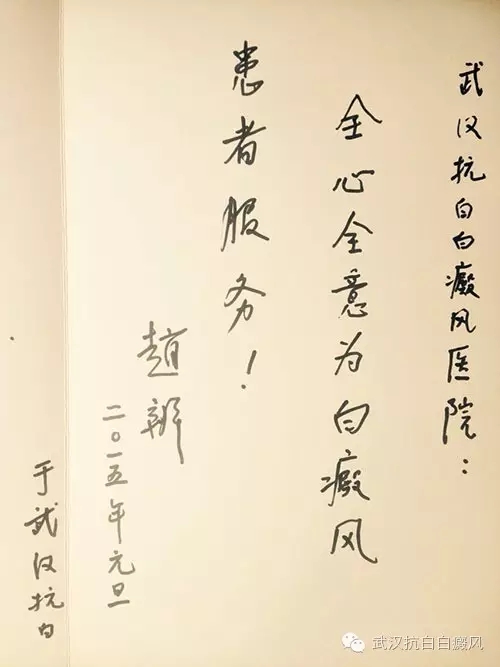 武汉抗白白癜风医院：
全心全意为白癜风
患者服务！
趙辨
二〇一五年元旦
于武汉抗白
武汉抗白白癜风